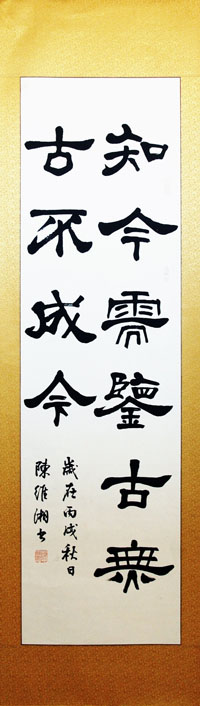 知今需鑒古無
古不成今
歲在丙戌秋日
陳維湘书